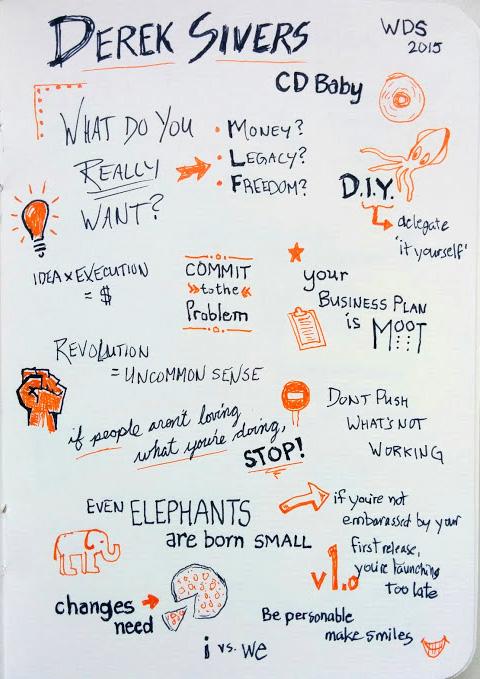 DEREK SIVERS
WDS
2015
CD Baby
WHAT DO YOU
REALLY
WANT?
• MONEY?
• LEGACY?
• FREEDOM?
D.I.Y.
delegate
'it yourself'
IDEA x EXECUTION
= $
COMMIT
to the
Problem
your
BUSINESS PLAN
is MOOT
REVOLUTION
= UNCOMMON SENSE
if people aren't loving
what you're doing,
STOP!
DON'T PUSH
WHAT'S NOT
WORKING
EVEN ELEPHANTS
are born SMALL
if you're not
embarassed by your
first release,
you're launching
too late
v1.0
changes
need
Be personable
make smiles
i vs. we